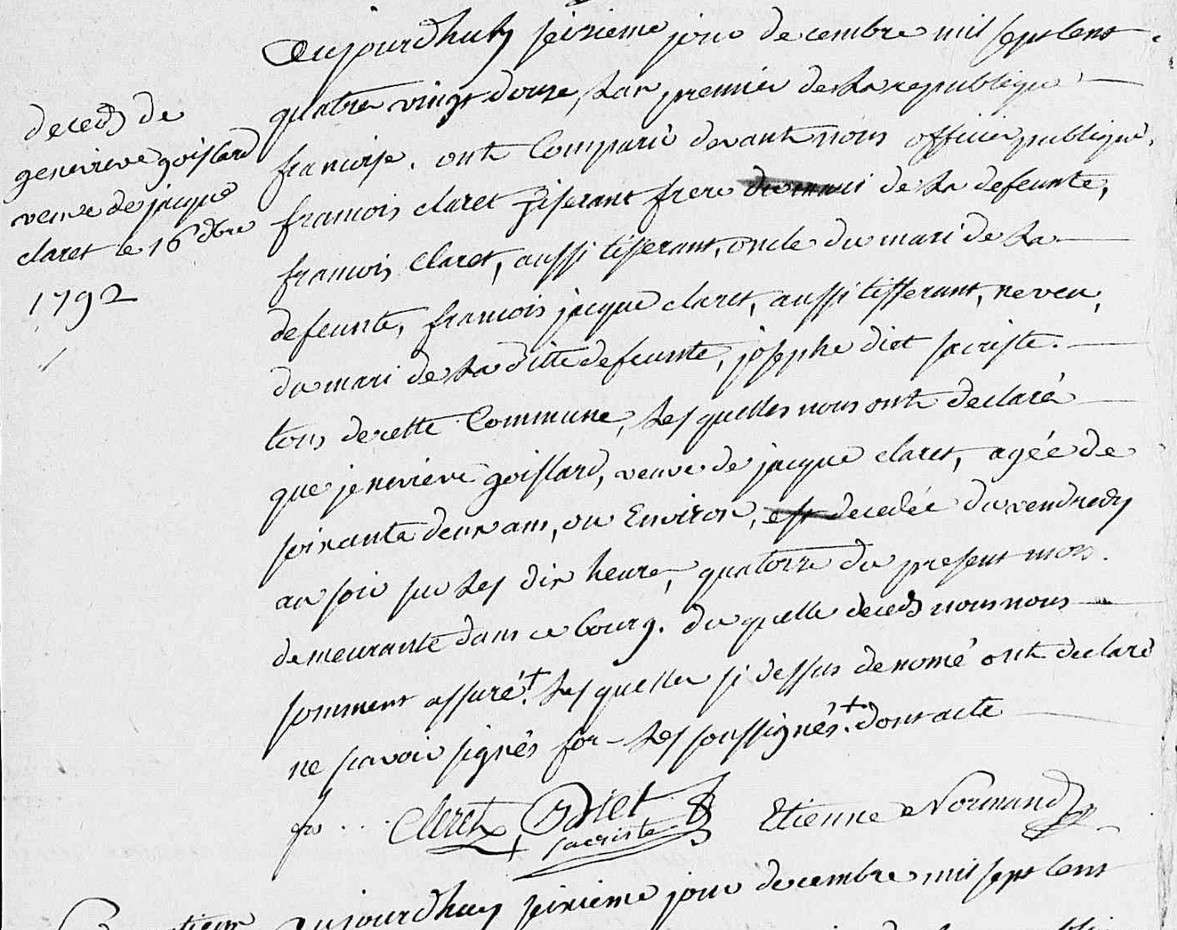 deceds de
genevieve goislard
veuve de jacque
claret le 16 dbre
1792
Aujourdhuy seizieme jour decembre mil sept cent
quatre vingt douze, l'an premier de la republique
francoise. ont Comparu devant nous officier publique,
francois claret tiserant frere du mari de la defeunte,
francois Claret, aussi tisserant, oncle du mari de la
defeunte, francois jacque claret, aussi tisserant, neveu,
du mari de la ditte defeunte, josephe diet sacriste.
tous de cette Commune, les quelles nous ont declaré
que jenevieve goislard, veuve de jacque claret, agée de
soixante deux ans, ou Environ, est decedée du vendredy
au soir sur les dix heures, quatorze du present mois.
demeurante dans ce bourg. du quelle deceds nous nous
somment assuré + les quelles si dessus denomé ont declaré
ne scavoir signés for les soussignés + dont acte
frs ... Claret Diet Etienne Normand
sacriste
aujourdhuy seizieme jour decembre mil sept cent